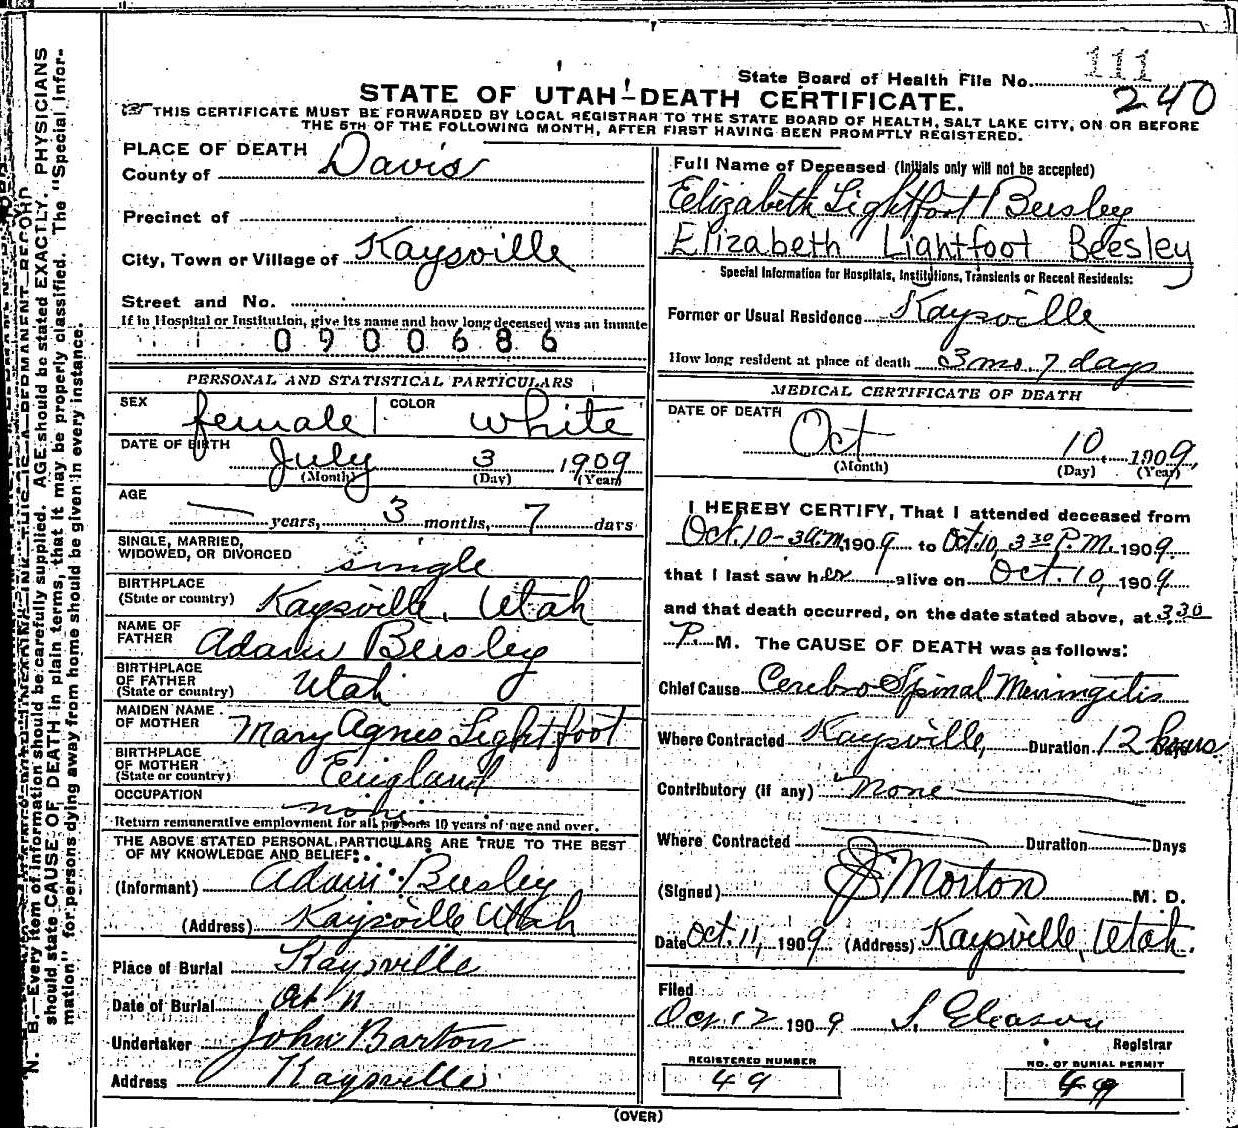 State Board of Health File No. 111
240
STATE OF UTAH-DEATH CERTIFICATE.
THIS CERTIFICATE MUST BE FORWARDED BY LOCAL REGISTRAR TO THE STATE BOARD OF HEALTH, SALT LAKE CITY, ON OR BEFORE
THE 5TH OF THE FOLLOWING MONTH, AFTER FIRST HAVING BEEN PROMPTLY REGISTERED.
PLACE OF DEATH
County of Davis
Precinct of
City, Town or Village of Kaysville
Street and No.
If in Hospital or Institution, give its name and how long deceased was an inmate
0900686
PERSONAL AND STATISTICAL PARTICULARS
SEX female COLOR white
DATE OF BIRTH
July 3 1909
(Month) (Day) (Year)
AGE
— years, 3 months, 7 days
SINGLE, MARRIED,
WIDOWED, OR DIVORCED single
BIRTHPLACE
(State or country) Kaysville, Utah
NAME OF
FATHER Adam Beesley
BIRTHPLACE
OF FATHER
(State or country) Utah
MAIDEN NAME
OF MOTHER Mary Agnes Lightfoot
BIRTHPLACE
OF MOTHER
(State or country) England
OCCUPATION
none
Return remunerative employment for all persons 10 years of age and over.
THE ABOVE STATED PERSONAL PARTICULARS ARE TRUE TO THE BEST
OF MY KNOWLEDGE AND BELIEF:
(Informant) Adam Beesley
(Address) Kaysville Utah
Place of Burial Kaysville
Date of Burial Oct 11
Undertaker John Barton
Address Kaysville
Full Name of Deceased (Initials only will not be accepted)
Elizabeth Lightfoot Beesley
Elizabeth Lightfoot Beesley
Special Information for Hospitals, Institutions, Transients or Recent Residents:
Former or Usual Residence Kaysville
How long resident at place of death 3 mo. 7 days
MEDICAL CERTIFICATE OF DEATH
DATE OF DEATH
Oct 10, 1909
(Month) (Day) (Year)
I HEREBY CERTIFY, That I attended deceased from
Oct. 10 - 3 a.m. 1909 to Oct. 10, 3 30 P.M. 1909
that I last saw her alive on Oct. 10, 1909
and that death occurred, on the date stated above, at 3 30
P. M. The CAUSE OF DEATH was as follows:
Chief Cause Cerebro Spinal Meningitis
Where Contracted Kaysville, Duration 12 hours
Contributory (if any) None
Where Contracted Duration Days
(Signed) J Morton M. D.
Date Oct. 11, 1909 (Address) Kaysville, Utah.
Filed
Oct 12 1909 S. Gleason
Registrar
REGISTERED NUMBER
49
NO. OF BURIAL PERMIT
49
(OVER)
N. B.—Every item of information should be carefully supplied. AGE should be stated EXACTLY. PHYSICIANS
should state CAUSE OF DEATH in plain terms, that it may be properly classified. The "Special Infor-
mation" for persons dying away from home should be given in every instance.